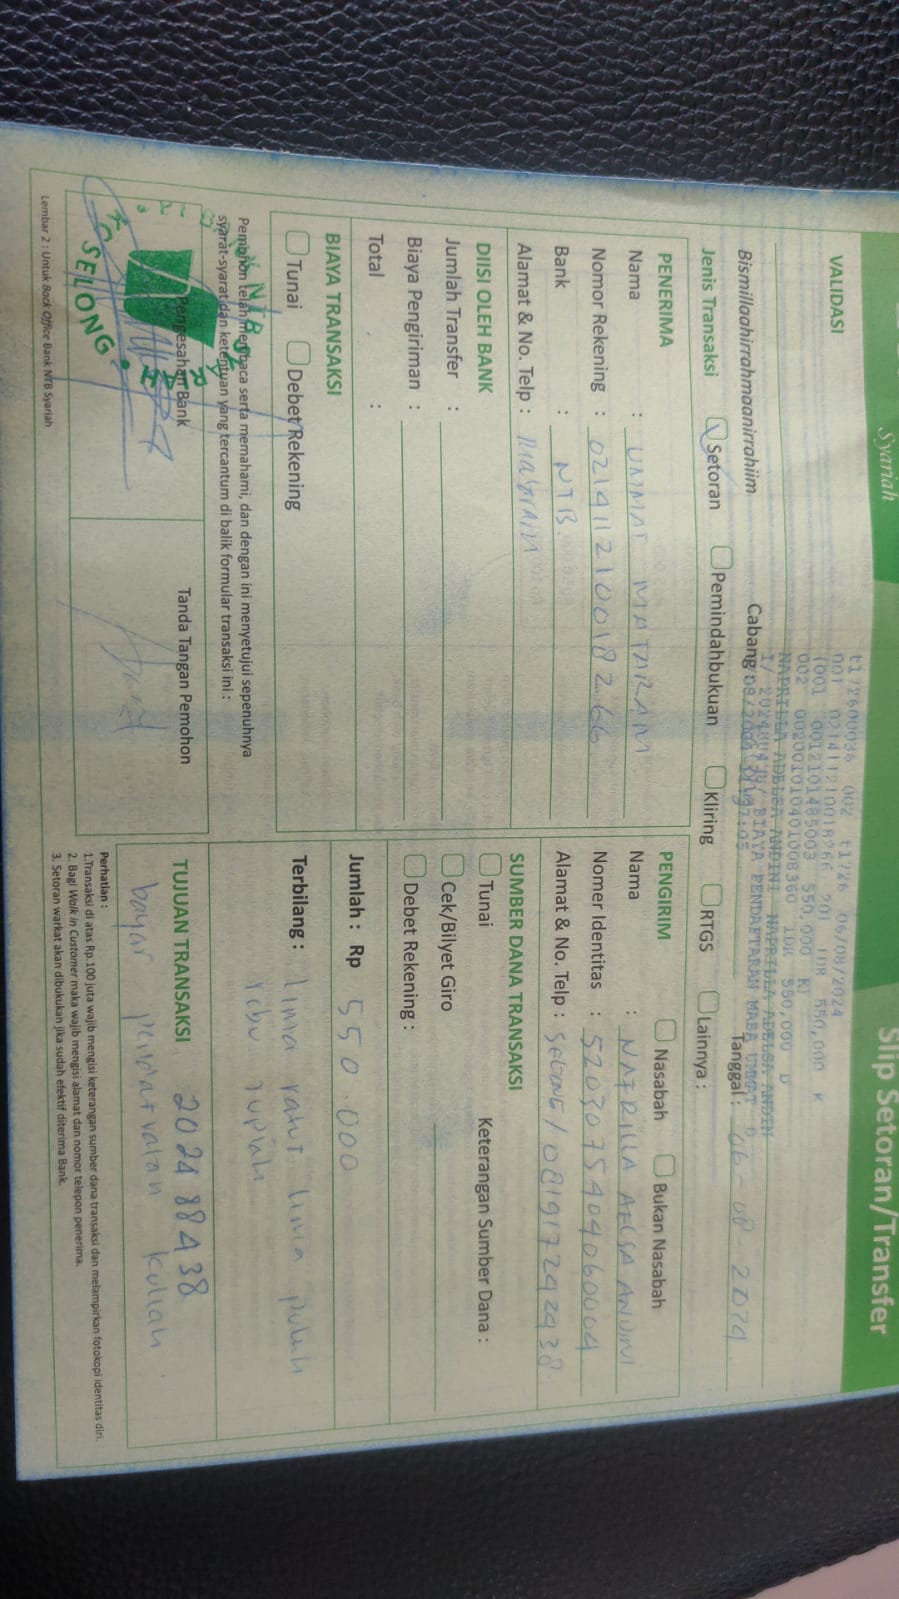 Syariah
Slip Setoran/Transfer
VALIDASI
t1/2600036 002 t1/26 06/08/2024
001 021411210018266 201 IDR 550,000 K
(001 0012101485003 550,000 K)
002 002001010401008360 IDR 550,000 D
NAPRILLA ADELSA ANDINI NAPRILLA ADELSA ANDIN
BIAYA PENDAFTARAN MABA UMMAT
Bismillaahirrahmaanirrahiim
Cabang :
Tanggal : 06 - 08 - 2024
Jenis Transaksi
Setoran
Pemindahbukuan
Kliring
RTGS
Lainnya :
PENERIMA
Nama : UMMAT MATARAM
Nomor Rekening : 021411210018266
Bank : NTB
Alamat & No. Telp : Mataram
PENGIRIM
Nasabah
Bukan Nasabah
Nama : ANDINI
Nomer Identitas : 5203075404060004
Alamat & No. Telp : Selong / 081917292938
DIISI OLEH BANK
Jumlah Transfer :
Biaya Pengiriman :
Total :
SUMBER DANA TRANSAKSI
Tunai
Keterangan Sumber Dana :
Cek/Bilyet Giro
Debet Rekening :
BIAYA TRANSAKSI
Tunai
Debet Rekening
Jumlah : Rp 550.000
Terbilang : lima ratus lima puluh
ribu rupiah
Pemohon telah membaca serta memahami, dan dengan ini menyetujui sepenuhnya
syarat-syarat dan ketentuan yang tercantum di balik formular transaksi ini :
Pengesahan Bank
Tanda Tangan Pemohon
SELONG
TUJUAN TRANSAKSI 202488438
bayar kuliah
Perhatian :
1.Transaksi di atas Rp.100 juta wajib mengisi keterangan sumber dana transaksi dan melampirkan fotokopi identitas diri.
2. Bagi Walk in Customer maka wajib mengisi alamat dan nomor telepon penerima.
3. Setoran warkat akan dibukukan jika sudah efektif diterima Bank.
Lembar 2 : Untuk Back Office Bank NTB Syariah